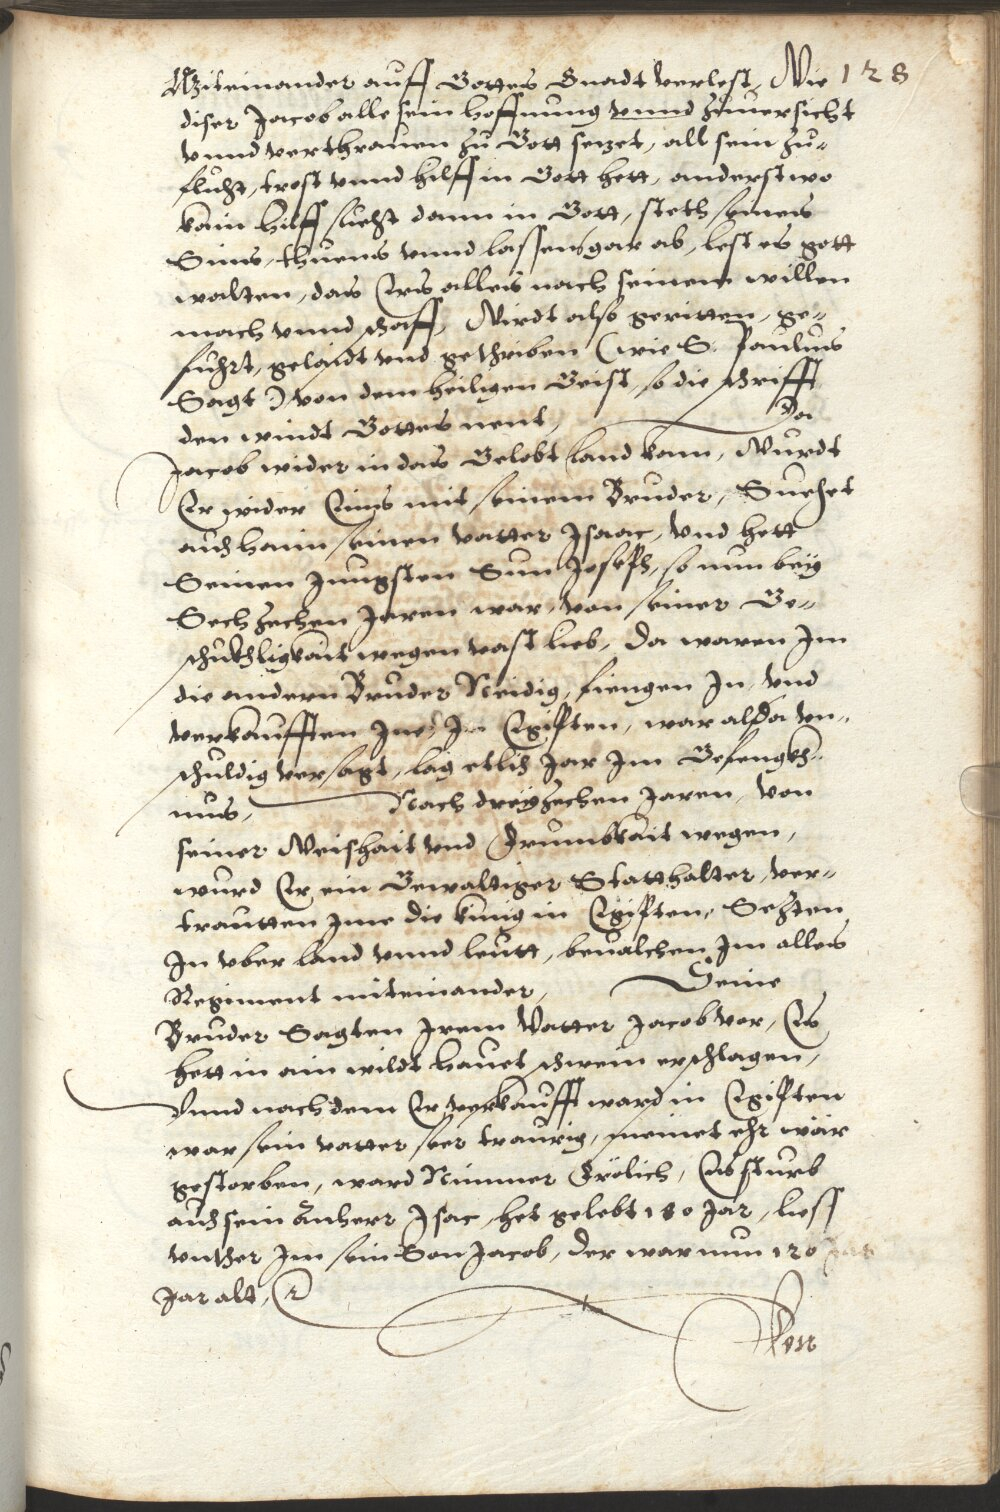 Miteinander auff Gottes Gnadt verlest, Wie 128
diser Jacob alle sein hoffnung vnnd zuuersicht
vnnd verthrauen zu Gott setzet, all sein zu-
flucht, trost vnnd hilff in Gott hett, anderstwo
kain hilff suecht dann in Gott, steth seines
Sins, thuens vnnd lassens gar ab, lest es gott
walten, das Ers alles nach seinem willen
mach vnnd schaff, Wirdt also geritten, ge-
fuhrt, gelaidt vnd gethriben (wie S. Paulus
Sagt) von dem heiligen Geist, so die schrifft
den windt Gottes nent, Da
Jacob wider in das Gelobt land kam, Wurdt
Er wider Eins mit seinem Bruder, Suechet
auch haim seinen vatter Isaac, vnd hett
Seinen Jungsten Sun Joseph, so nun bey
Sechzechen Jaren war, von seiner Ge-
schickhligkait wegen vast lieb, Da waren Im
die andern Bruder Neidig, fiengen In, vnd
verkaufften Ine In Egipten, war alda vn-
schuldig versagt, lag etlich Jar Im Gefengkh-
nus, Nach dreyzechen Jaren, von
seiner Weishait vnd Frumbkait wegen,
wurd Er ein Gewaltiger Statthalter, ver-
trautten Ime die kunig in Egipten, Sezten
In vber land vnnd leutt, beualchen Im alles
Regiment miteinander, Seine
Bruder Sagten Irem Vatter Jacob vor, Es
hett in ain wildt hauet schwein erschlagen,
Vnnd nach dem Er verkaufft ward in Egipten
war sein vatter seer traurig, meinet ehr wär
gestorben, ward Nimmer Frölich, Es sturb
auch sein Anherr Isac, het gelebt 180 Jar, liess
vnther Im sein Son Jacob, der war nun 120
Jar alt,
Den